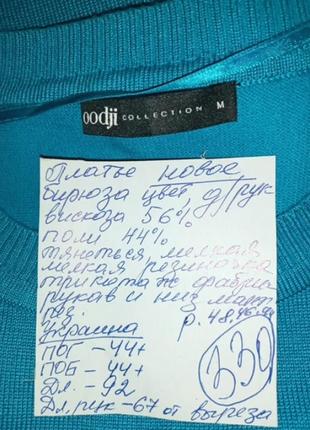 oodji COLLECTION M
Платье новое
бирюза цвет, д/рук
вискоза 56%
поли 44%
тянеться, мелкая
мелкая резиночка
трикотаж фабри
рукав и низ
рез. р. 48,46,44
Украина 330
ПОГ - 44+
ПОБ - 44+
Дл. - 92
Дл, рук - 67 от выреза